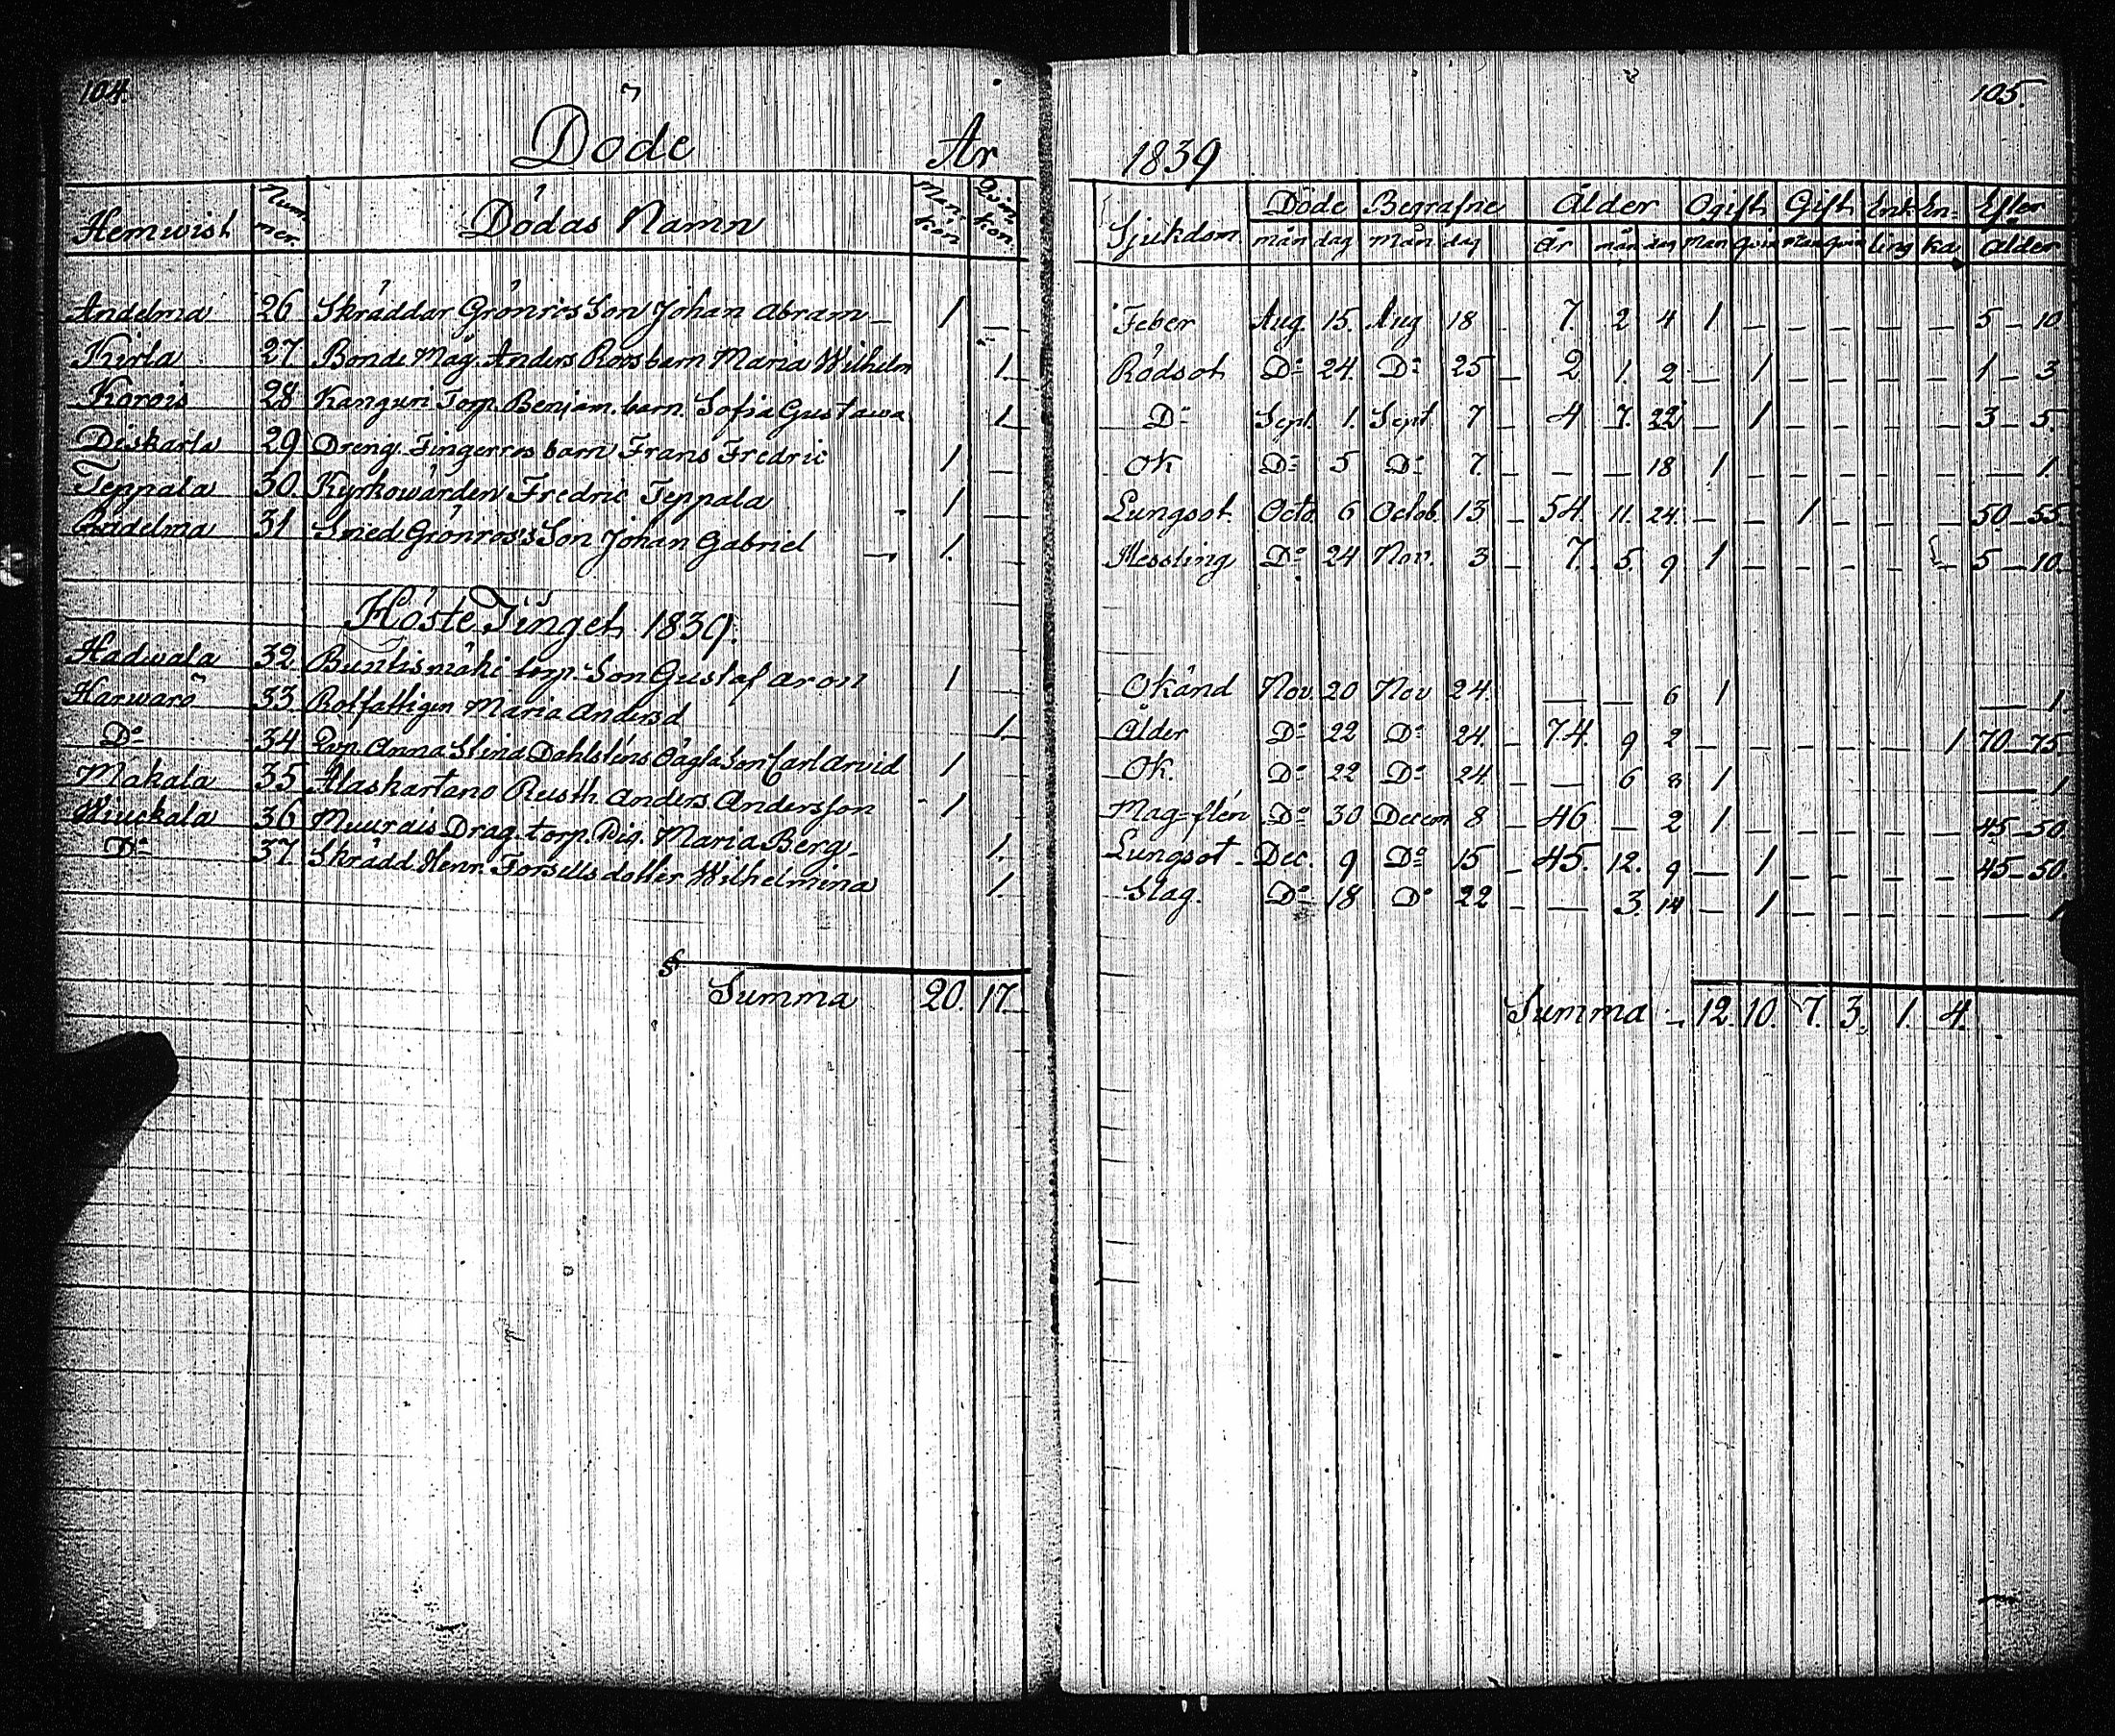 104.
Döde År
Hemwist Num̄er. Dödas Namn Mankön Qvinkön.
Andelma 26 Skräddar Grönros Son Johan Abram 1 —
Kirla 27 Bonde Måg. Anders Roos barn Maria Wilhelm 1.
Korois 28 Kanguri Torp. Benjam. barn. Sofia Gustawa 1
Diskarla 29 Dreng. Fingerroos barn Frans Fredric 1 —
Teppala 30. Kyrkowärden Fredric Teppala 1 —
Andelma 31 Smed Grönros's Son Johan Gabriel 1.
Höste Tinget 1839.
Hadwala 32 Buntismäki torp. Son Gustaf Aron 1
Harwarö 33 Rotfattigen Maria Andersd 1.
Do 34 Anna Stina Dahlsténs Oägta Son Carl Arvid 1
Makala 35 Alaskartano Rusth. Anders Andersson 1.
Wiuckala 36 Muurais Drag. torp. Pig. Maria Berg 1.
Do 37 Skrädd. Henr. Forsells dotter Wilhelmina 1.
Summa 20. 17.
105.
1839
Sjukdom Döde Begrafne Ålder Ogift Gift Enk En- Efter
mån dag mån dag År mån dag Man Qvin Man Qvin ling ka ålder
Feber Aug. 15. Aug 18 7. 2 4 1 — — — — — 5 — 10
Rödsot Do 24. Do 25 — 2 1. 2 — 1 — — — — 1 — 3
Do Sept. 1. Sept 7 — 4 7. 22 — 1 — — — — 3 — 5.
Ok Do 5 Do 7. — — — 18 1 — — — — — — 1.
Lungsot. Octo 6 Octob. 13 — 54 11. 24. — — 1 — — — 50 — 55.
Messling Do 24 Nov. 3 — 7. 5. 9 1 — — — — — 5 — 10.
Okänd Nov. 20 Nov 24. — — 6 1 — 1.
Ålder Do 22 Do 24. — 74. 9 2 — — — — — 1 70 — 75
Ok. Do 22 Do 24. — — 6 8 1 — 1
Mag-flen Do 30 Decem 8 — 46 — 2 1 — — — — — 45 — 50
Lungsot — Dec. 9 Do 15 — 45. 12. 9 — 1 — — — — 45 — 50
Slag. Do 18 Do 22 — — 3. 14 — 1 — — — — — 1
Summa — 12. 10. 7. 3. 1. 4.